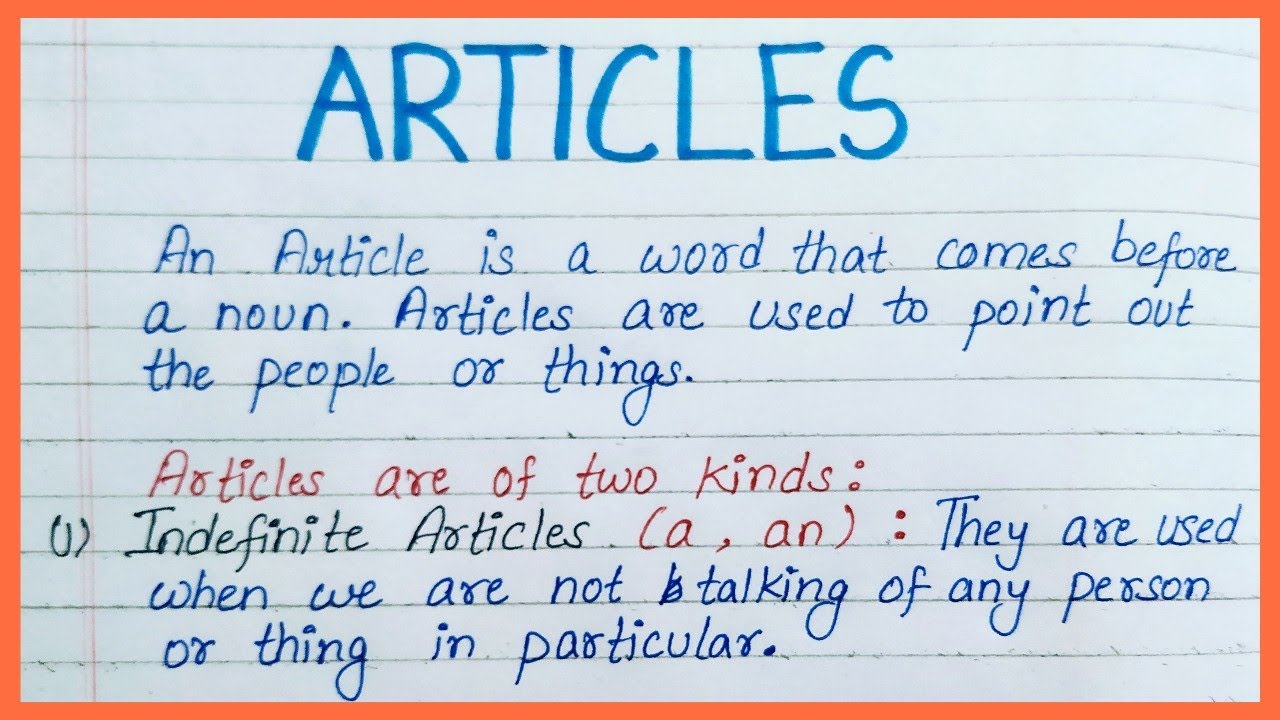 ARTICLES
An Article is a word that comes before
a noun. Articles are used to point out
the people or things.
Articles are of two kinds:
(1) Indefinite Articles (a, an) : They are used
when we are not talking of any person
or thing in particular.